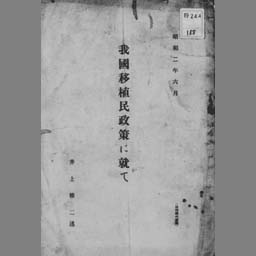 特244
155
昭和二年六月
我國移植民政策に就て
井上雅二述